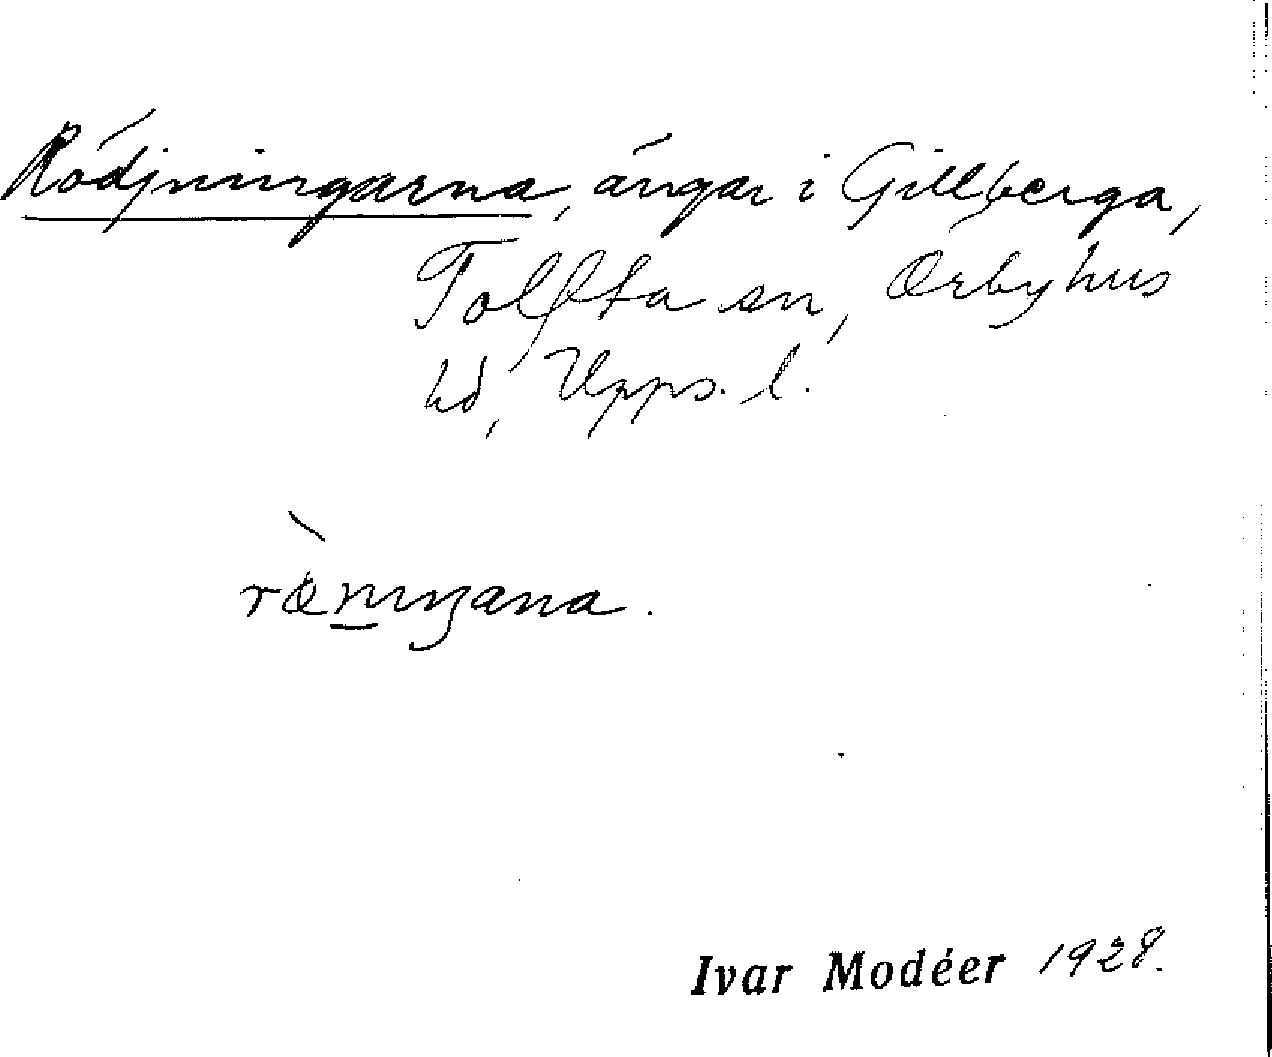 Rödjningarna, ängar i Gillberga,
Tolfta sn, Örbyhus
hd, Upps. l.
ræ̀nıŋana.
Ivar Modéer 1928.